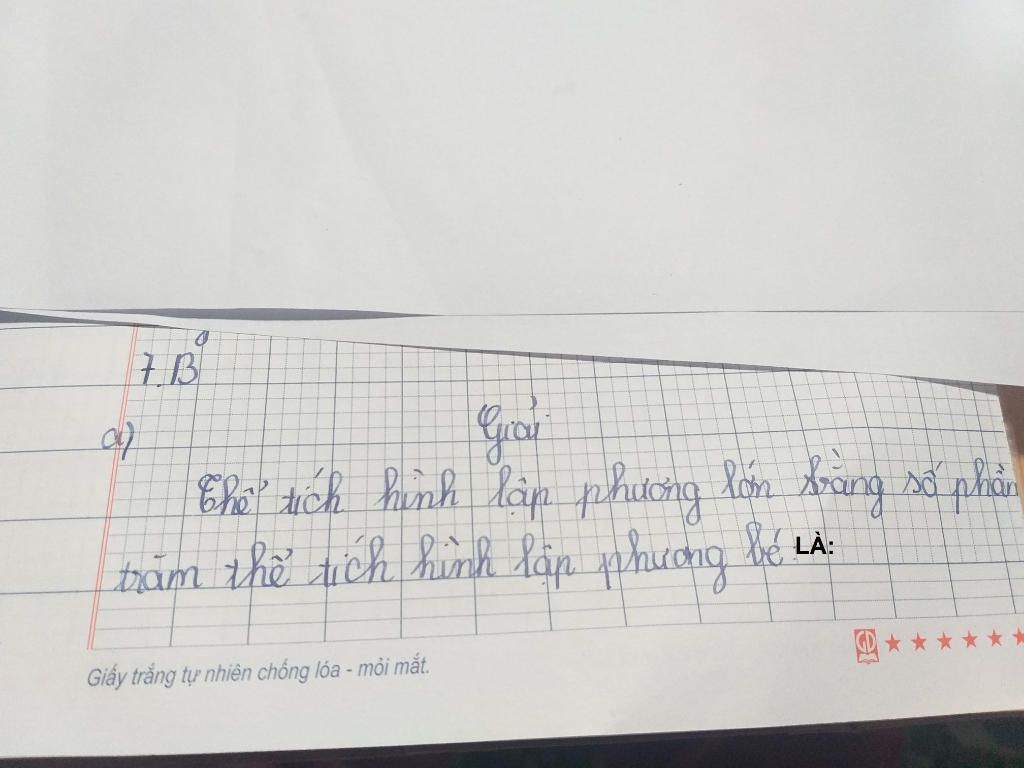 7. B
a)
Giải
Thể tích hình lập phương lớn bằng số phần
trăm thể tích hình lập phương bé LÀ:
Giấy trắng tự nhiên chống lóa - mỏi mắt.